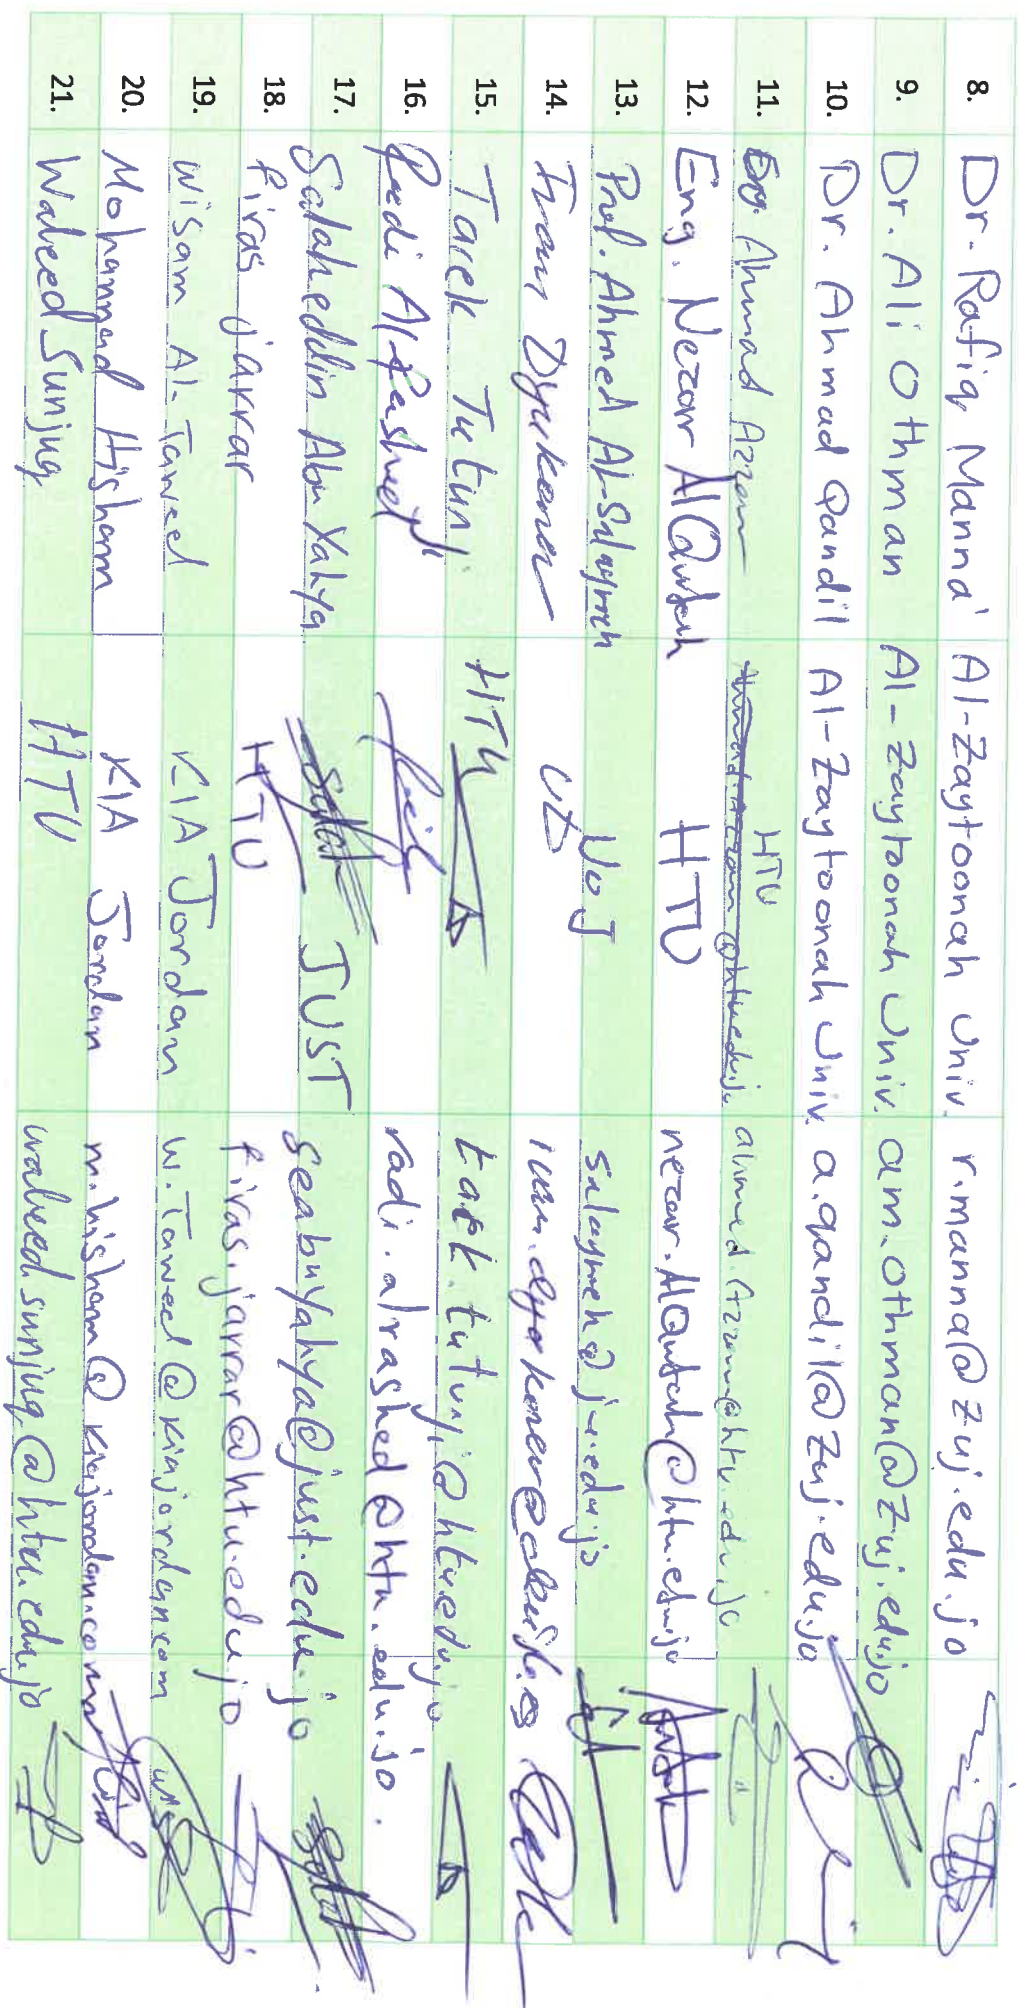 8. Dr. Rafiq Manna' Al-Zaytoonah Univ. r.manna@zuj.edu.jo
9. Dr. Ali Othman Al-Zaytoonah Univ. am.othman@zuj.edu.jo
10. Dr. Ahmad Qandil Al-Zaytoonah Univ. a.qandil@zuj.edu.jo
11. Eng. Ahmad Azzam HTU ahmed.Azzam@htu.edu.jo
12. Eng. Nezar AlQutah HTU nezar.AlQutah@htu.edu.jo
13. Prof. Ahmed Al-Salaymeh UoJ salaymeh@ju.edu.jo
14. Ivan UD
15. Tarek Tutunji HTU tarek.tutunji@htu.edu.jo
16. Radi Al-Rashed radi.alrashed@htu.edu.jo.
17. Salaheddin Abu Yahya JUST seabuYahya@just.edu.jo
18. firas jarrar HTU firas.jarrar@htu.edu.jo
19. Wisam Al-Taweel KIA Jordan w.Taweel@kiajordan.com
20. Mohammad Hisham KIA Jordan m.hisham@kiajordan.com
21. Waleed Sunjuq HTU waleed.sunjuq@htu.edu.jo